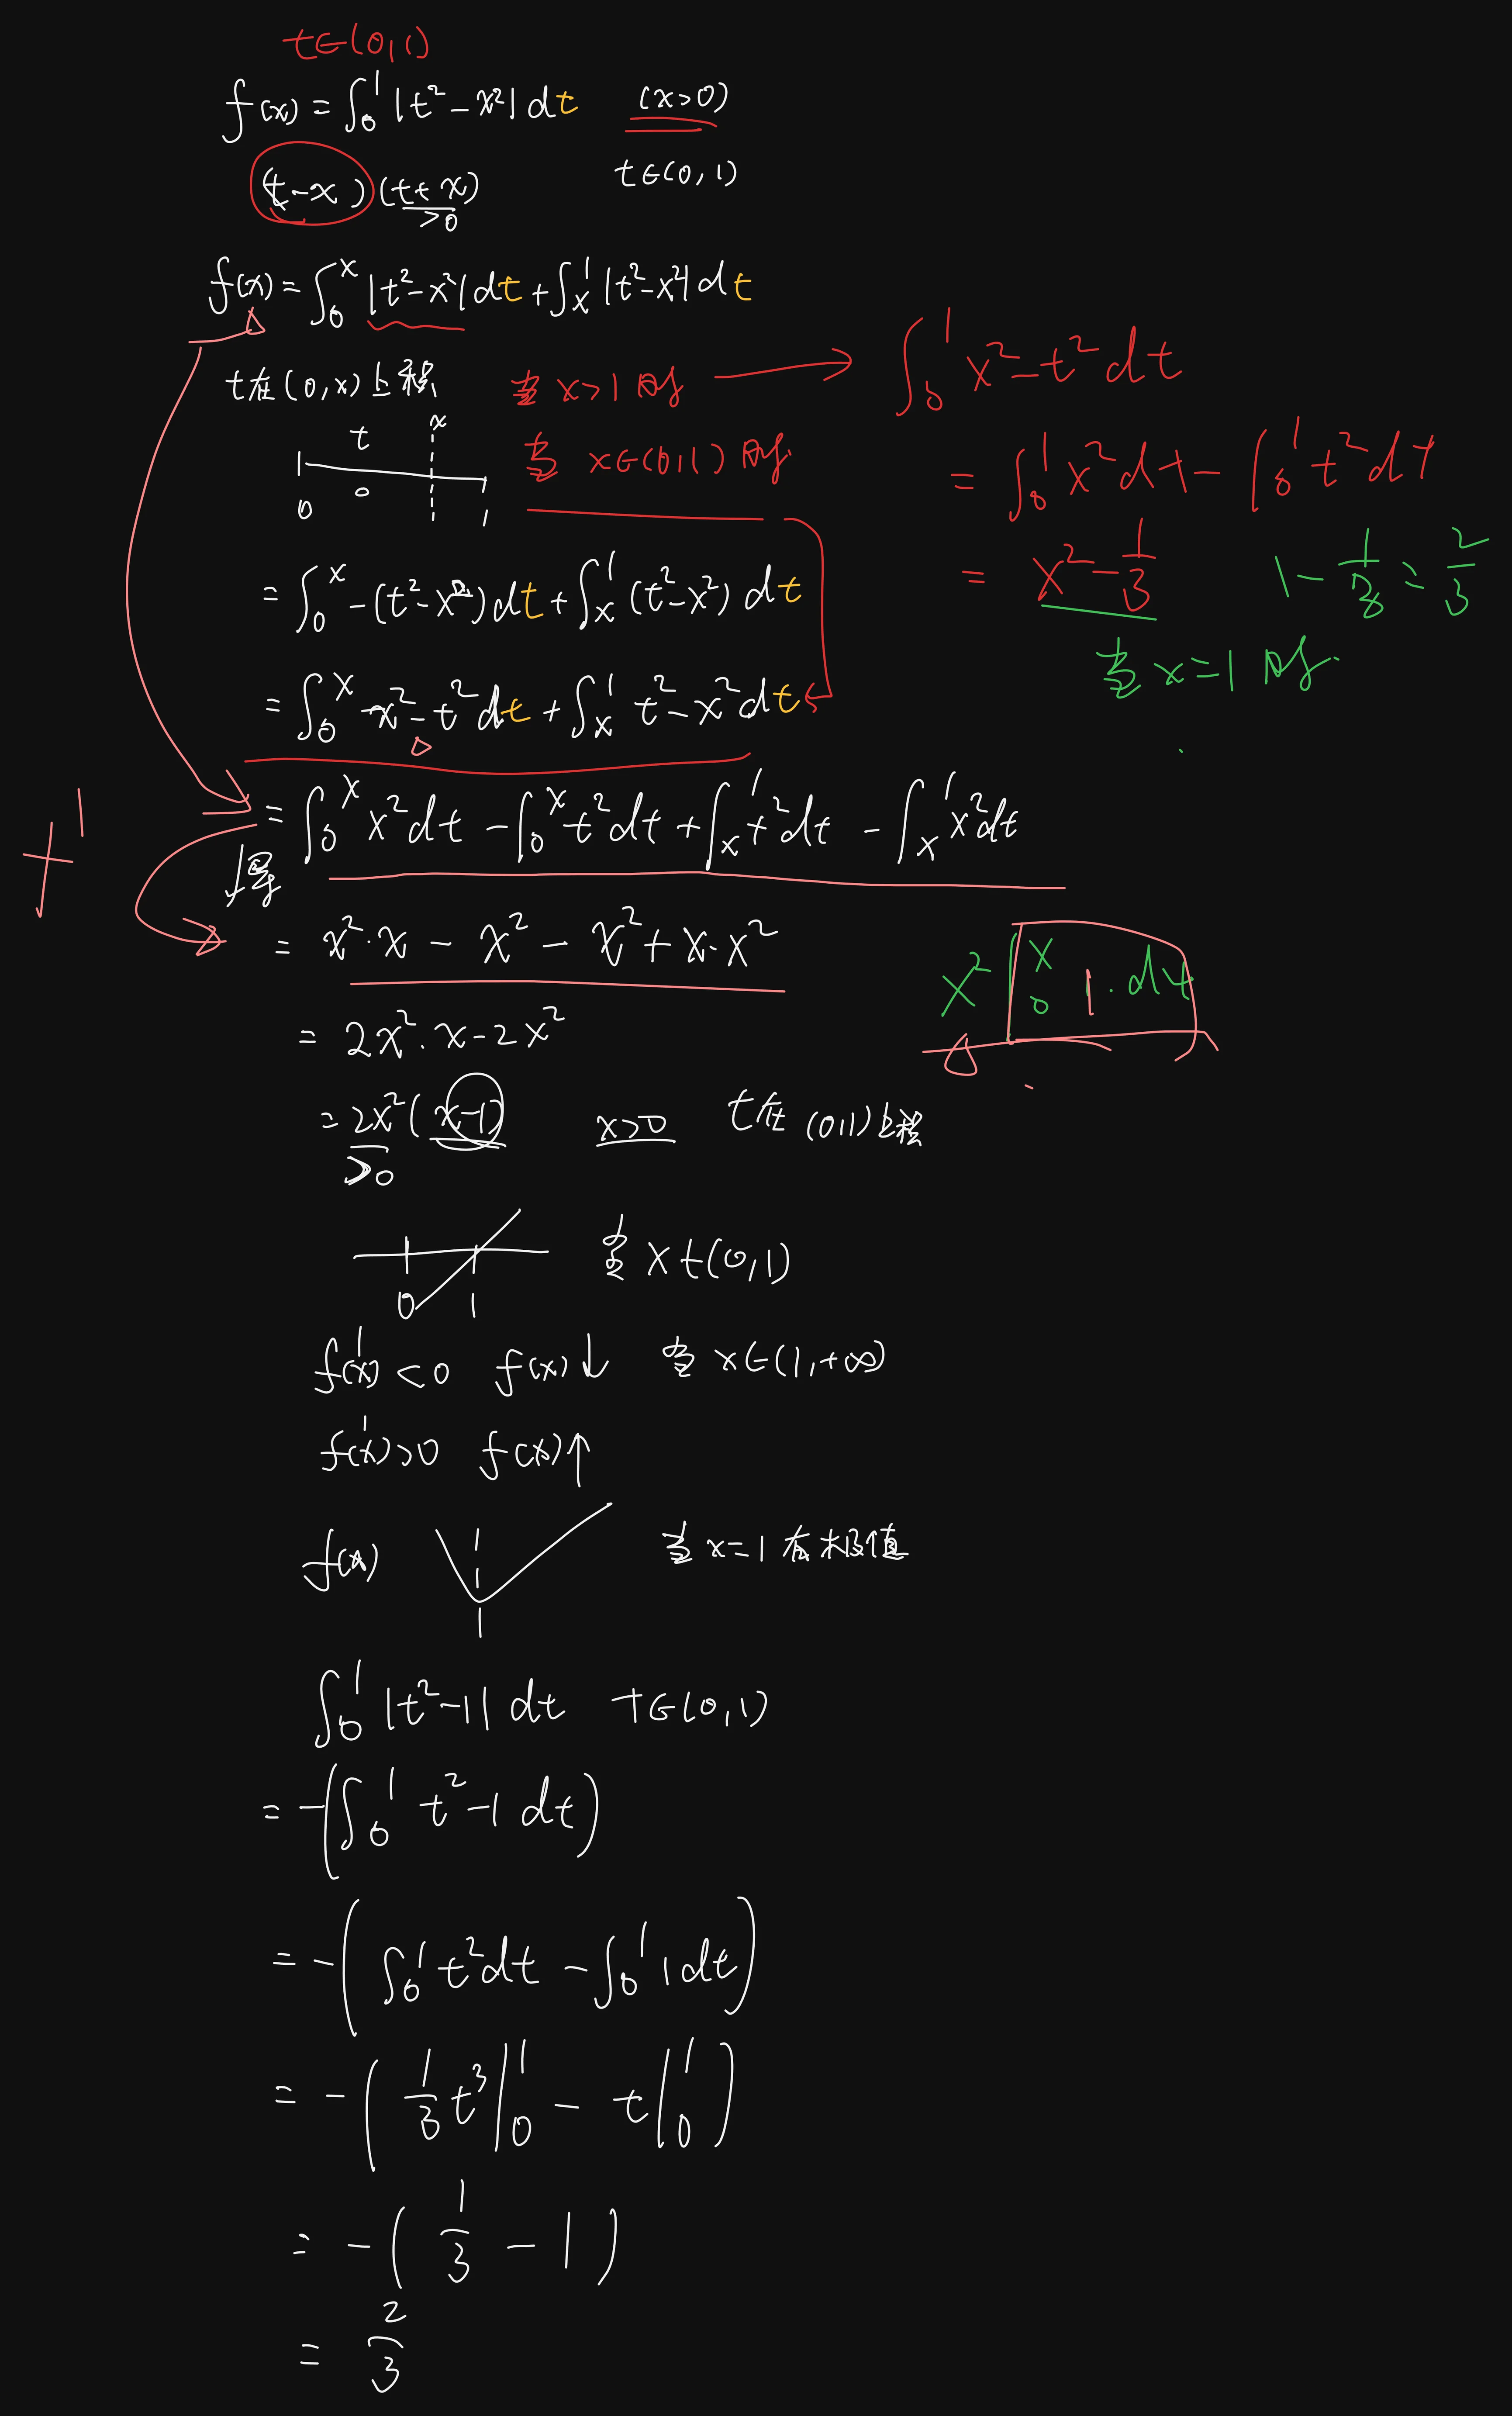 t∈(0,1)
f(x) = ∫₀¹ |t² - x²| dt (x>0)
(t-x)(t+x) t∈(0,1)
>0
f(x) = ∫₀ˣ |t² - x²| dt + ∫ₓ¹ |t² - x²| dt
t在(0,x)上移
当 x>1 时
∫₀¹ x² - t² dt
当 x∈(0,1) 时
t x
0 0 1
= ∫₀¹ x² dt - ∫₀¹ t² dt
= x² - 1/3
1 - 1/3 = 2/3
当 x=1 时
= ∫₀ˣ -(t² - x²) dt + ∫ₓ¹ (t² - x²) dt
= ∫₀ˣ x² - t² dt + ∫ₓ¹ t² - x² dt
= ∫₀ˣ x² dt - ∫₀ˣ t² dt + ∫ₓ¹ t² dt - ∫ₓ¹ x² dt
= x²·x - x² - x² + x·x²
x² ∫₀ˣ 1·dt
= 2x²·x - 2x²
= 2x²(x-1) x>0 t在(0,1)上移
>0
0 1 当 x t(0,1)
f'(x) <0 f(x)↓ 当 x∈(1,+∞)
f'(x) >0 f(x)↑
f(x) 1 当 x=1 有极值
∫₀¹ |t² - 1| dt t∈(0,1)
= -(∫₀¹ t² - 1 dt)
= -(∫₀¹ t² dt - ∫₀¹ 1 dt)
= -(1/3 t³|₀¹ - t|₀¹)
= -(1/3 - 1)
= 2/3